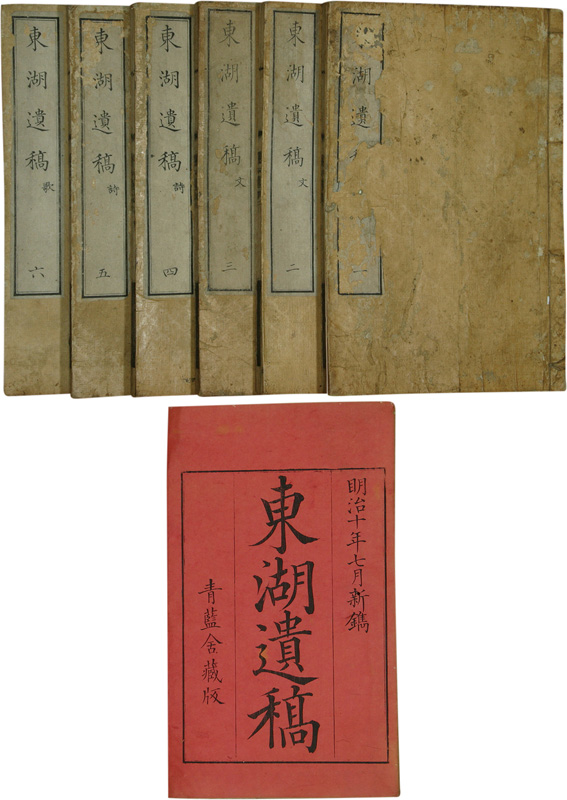 湖遺
一
東湖遺稿 文
二
東湖遺稿 文
三
東湖遺稿 詩
四
東湖遺稿 詩
五
東湖遺稿 歌
六
明治十年七月新鐫
東湖遺稿
青藍舍藏版